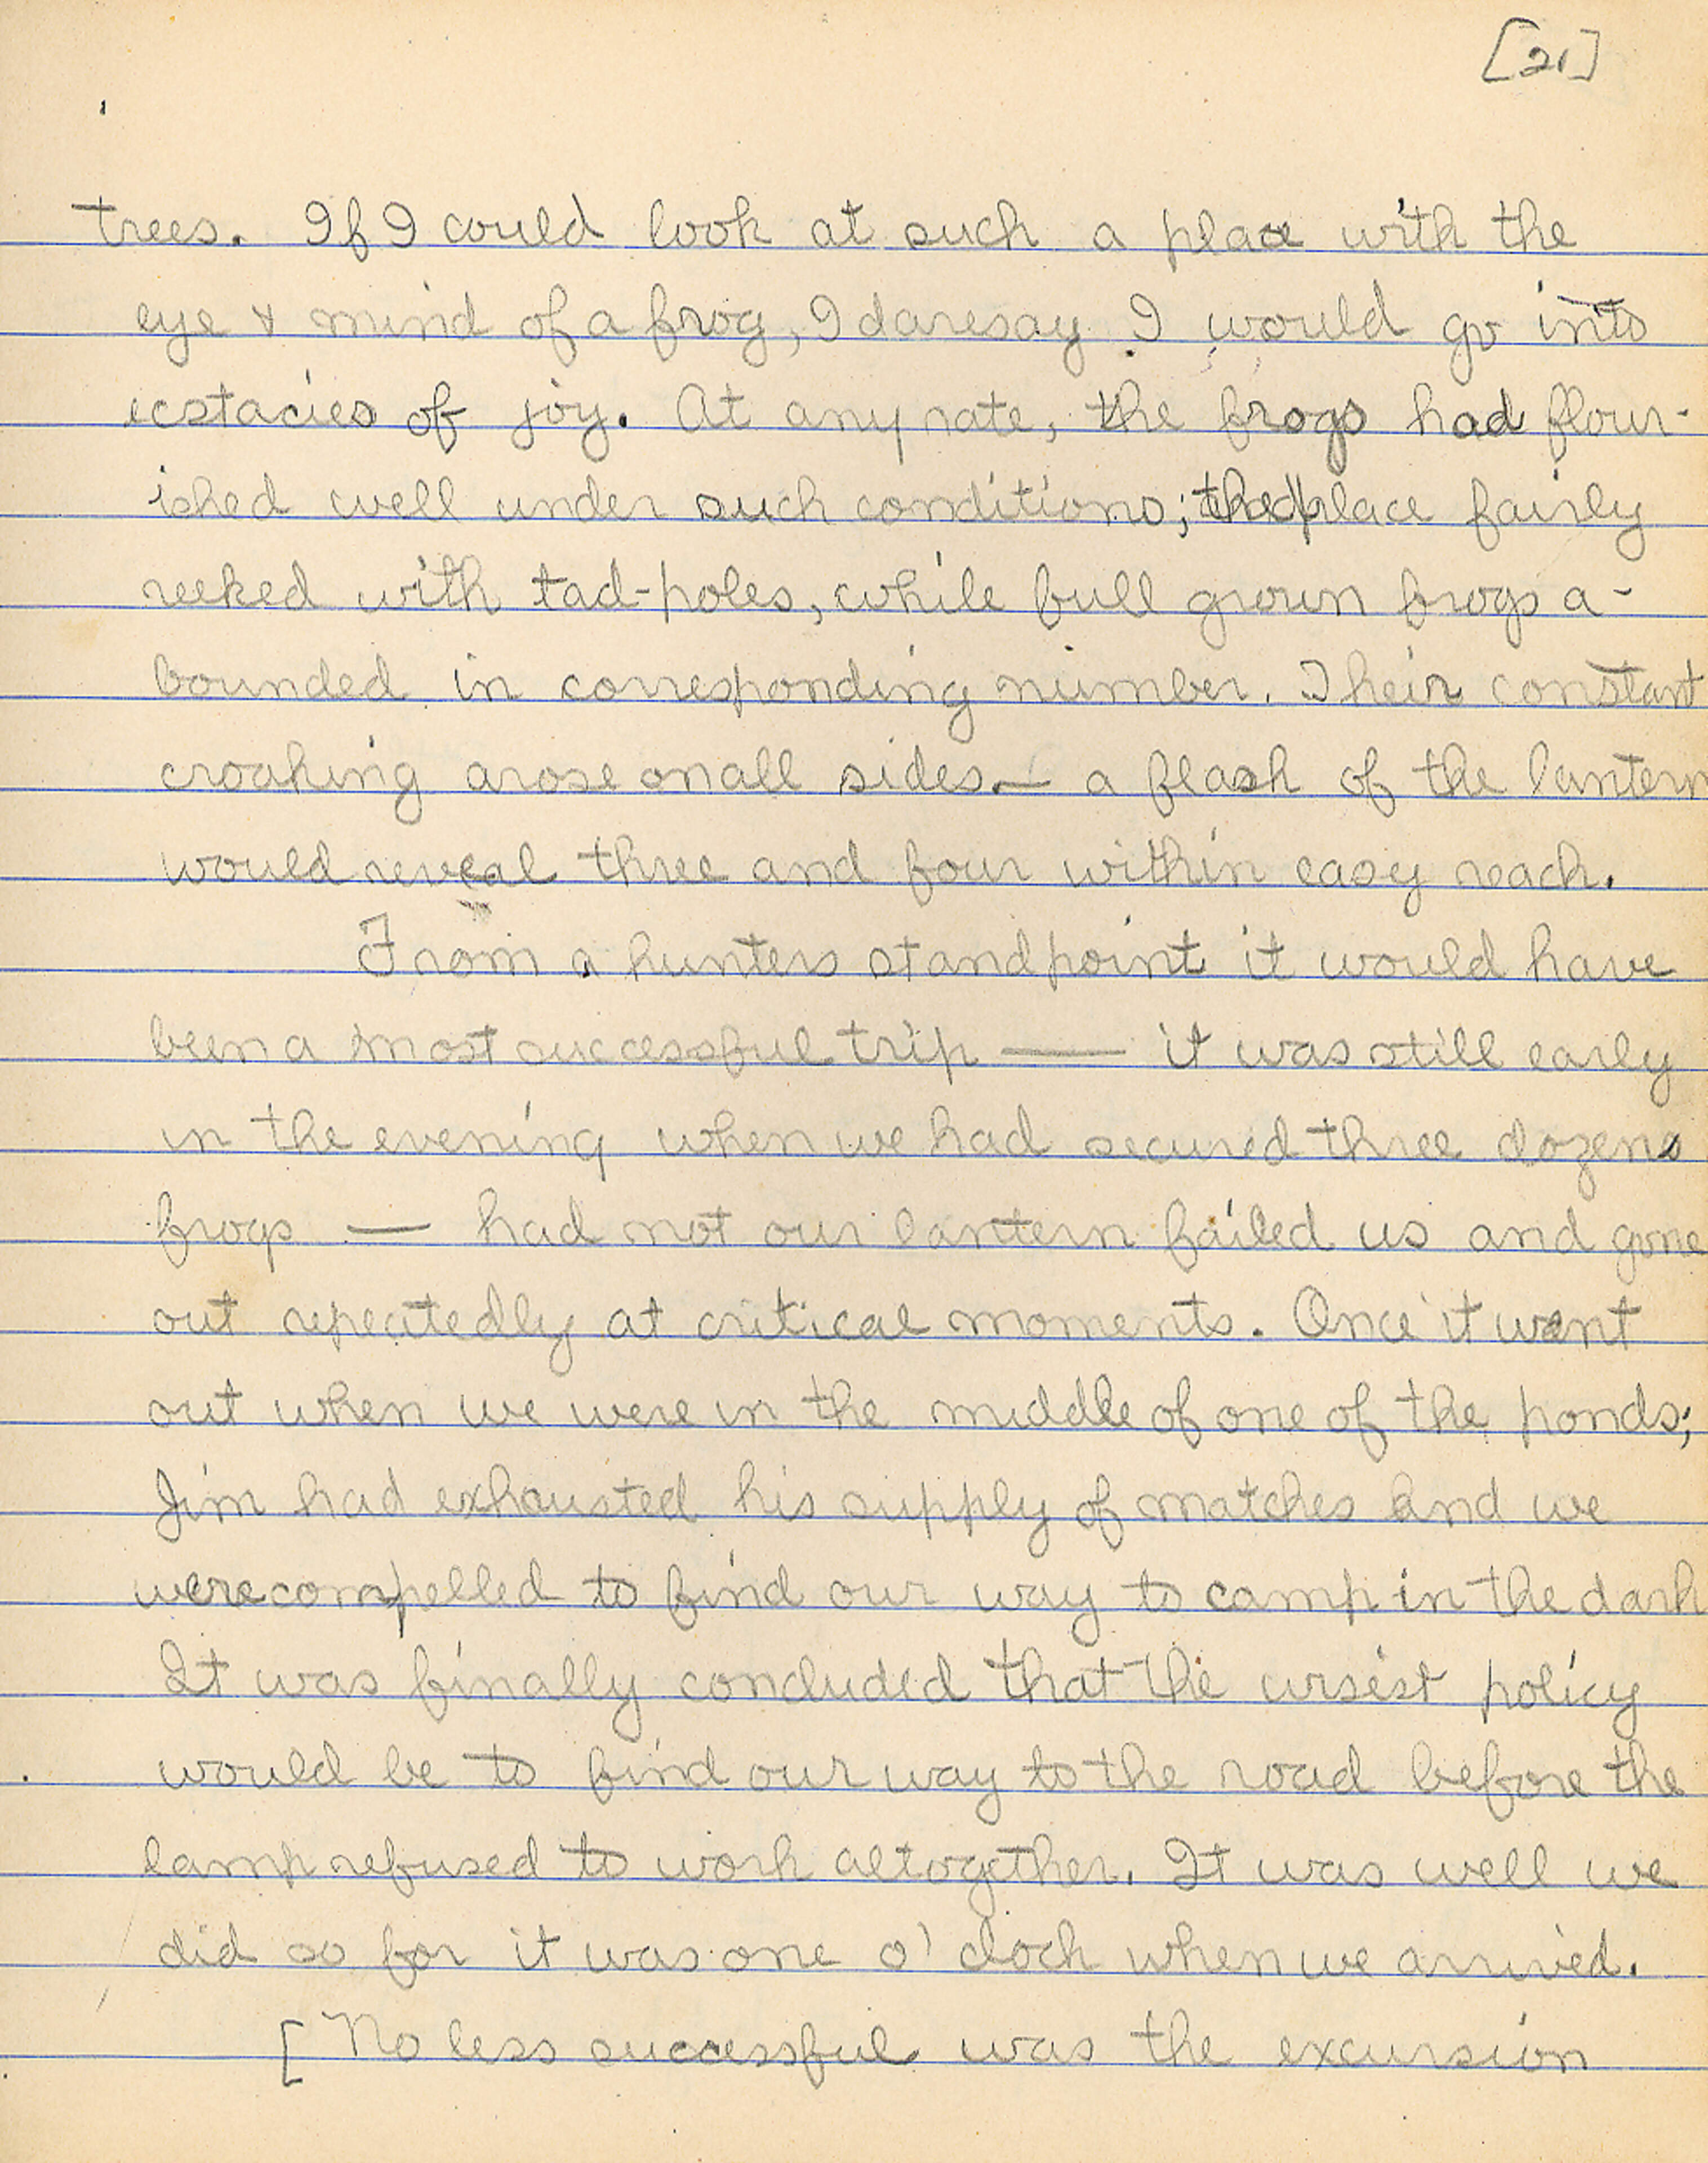 [21]
trees. If I could look at such a place with the
eye & mind of a frog, I daresay I would go into
ecstacies of joy. At any rate, the frogs had flour-
ished well under such conditions; the place fairly
reeked with tad-poles, while full grown frogs a-
bounded in corresponding number. Their constant
croaking arose on all sides — a flash of the lantern
would reveal three and four within easy reach.
From a hunters standpoint it would have
been a most successful trip — it was still early
in the evening when we had secured three dozens
frogs — had not our lantern failed us and gone
out repeatedly at critical moments. Once it went
out when we were in the middle of one of the ponds;
Jim had exhausted his supply of matches and we
were compelled to find our way to camp in the dark
It was finally concluded that the wisest policy
would be to find our way to the road before the
lamp refused to work altogether. It was well we
did so for it was one o'clock when we arrived.
[ No less successful was the excursion